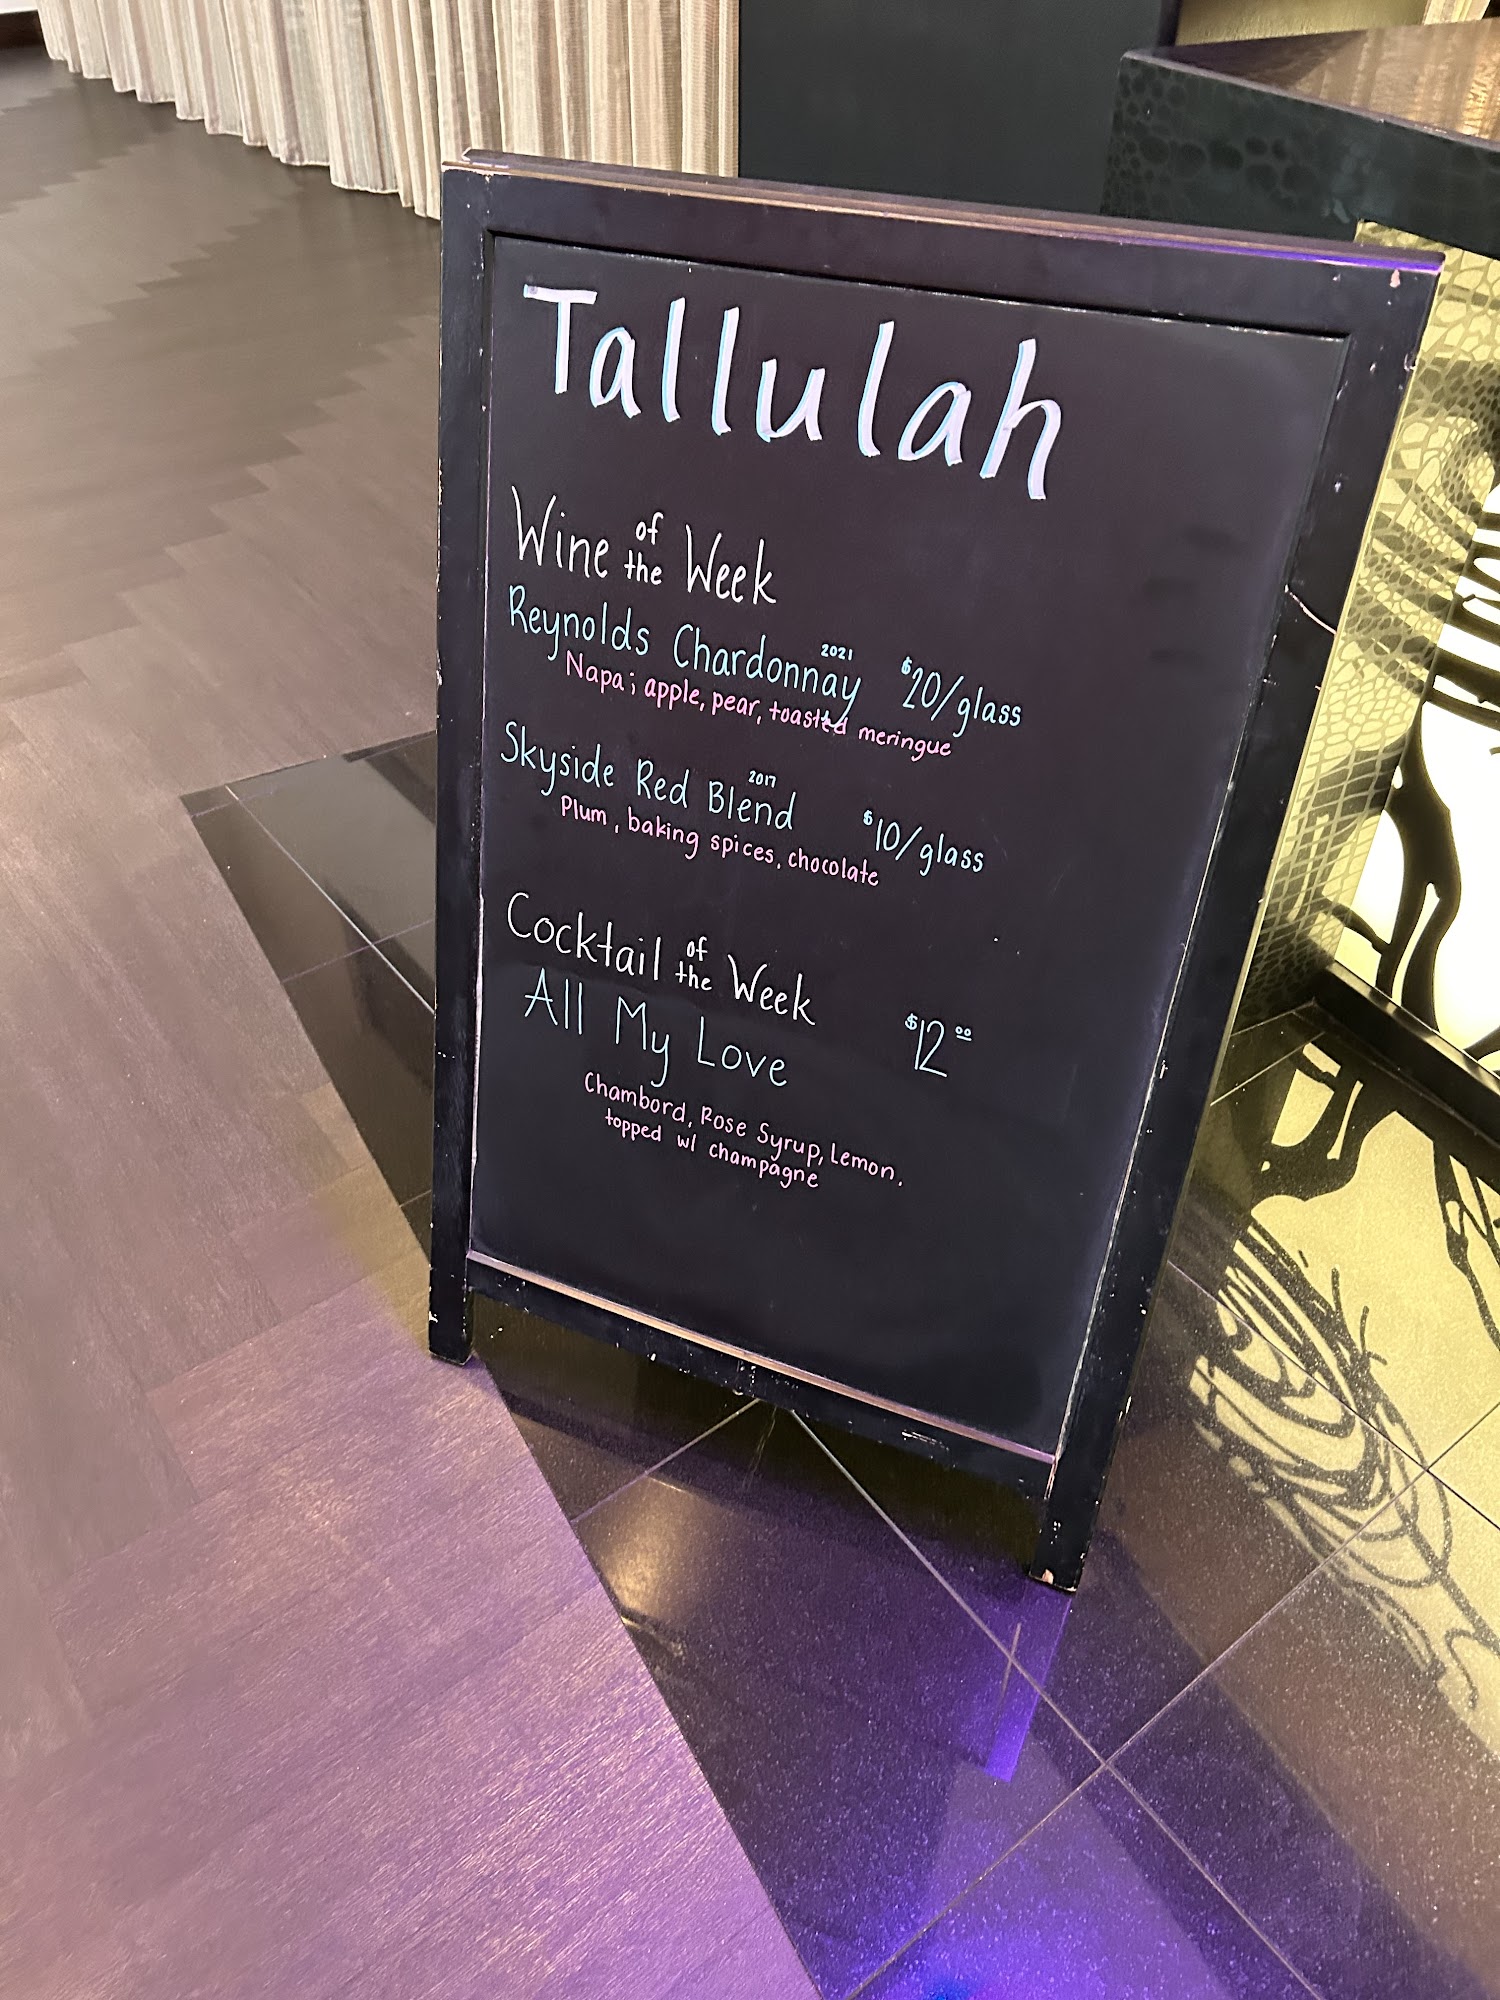 Tallulah
Wine of the Week
Reynolds Chardonnay 2021 $20/glass
Napa; apple, pear, toasted meringue
Skyside Red Blend 2017 $10/glass
Plum, baking spices, chocolate
Cocktail of the Week
All My Love $12.00
Chambord, Rose Syrup, Lemon.
topped w/ champagne